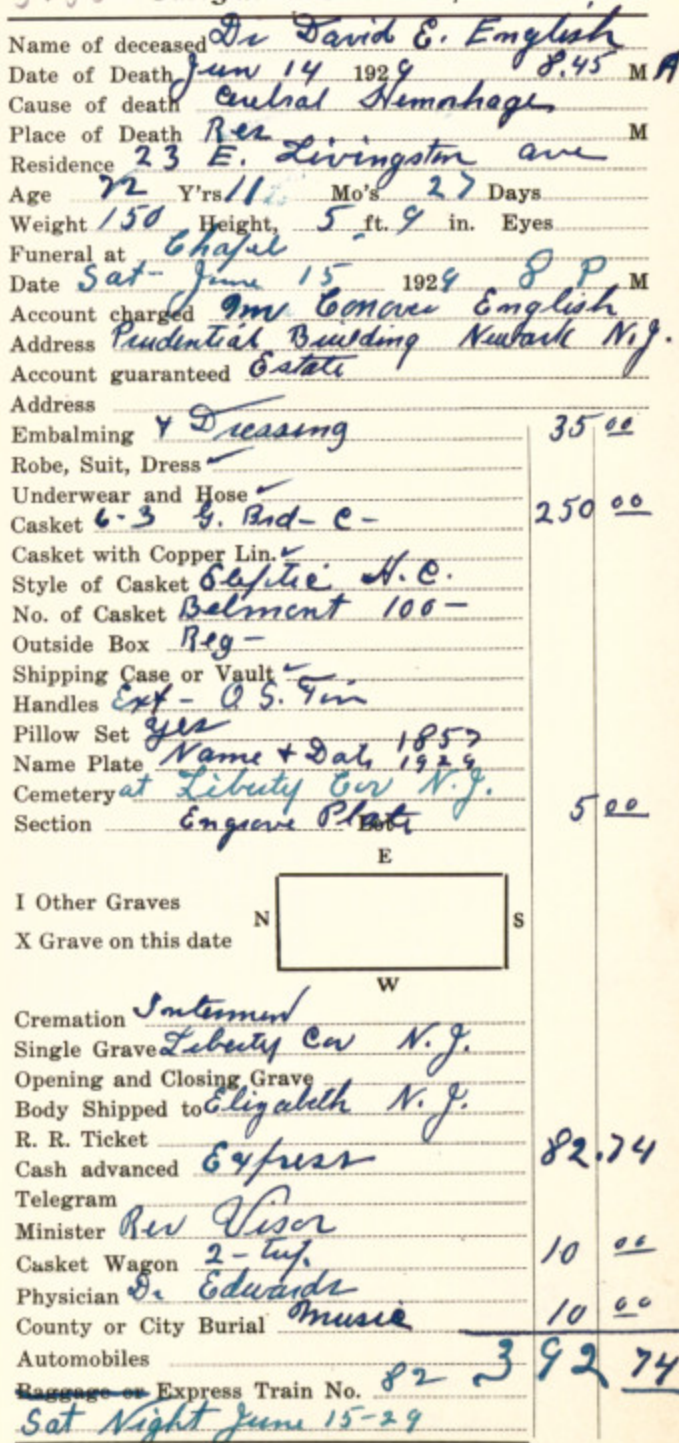 Name of deceased Dr David E. English
Date of Death Jun 14 1929 8.45 M A
Cause of death Cerebral Hemorhage
Place of Death Res M
Residence 23 E. Livingston ave
Age 72 Y'rs 11 Mo's 27 Days
Weight 150 Height, 5 ft. 9 in. Eyes
Funeral at Chapel
Date Sat- June 15 1929 8 P M
Account charged Conover English
Address Prudential Building Newark N.J.
Account guaranteed Estate
Address
Embalming & Dressing 35 00
Robe, Suit, Dress ✓
Underwear and Hose ✓
Casket 6-3 G. Brd- C- 250 00
Casket with Copper Lin. ✓
Style of Casket Eleptic H.C.
No. of Casket Belmont 100-
Outside Box Reg-
Shipping Case or Vault ✓
Handles Ext- O S. Fin
Pillow Set yes
Name Plate Name + Date 1857 1929
Cemetery at Liberty Cor N.J.
Section Engrave Plate 5 00
E
I Other Graves
N S
X Grave on this date
W
Cremation Interment
Single Grave Liberty Cor N.J.
Opening and Closing Grave
Body Shipped to Elizabeth N.J.
R. R. Ticket
Cash advanced Express 82.74
Telegram
Minister Rev Visor
Casket Wagon 2- 10 00
Physician Dr Edwards
County or City Burial Music 10 00
Automobiles 392 74
Baggage or Express Train No. 82
Sat Night June 15-29